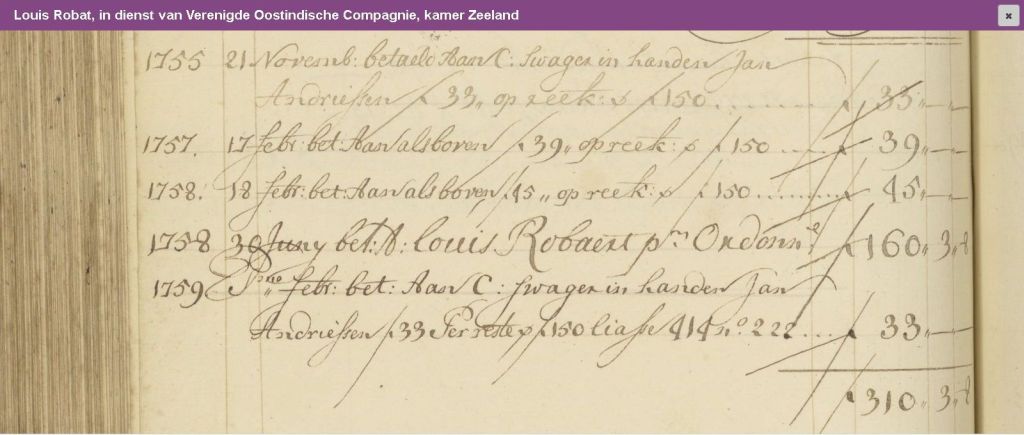 Louis Robat, in dienst van Verenigde Oostindische Compagnie, kamer Zeeland
1755 21 Novemb: betaeld Aan C: Swager in handen Jan
Andriessen ƒ 33,, op reek: p ƒ 150 ....... ƒ 33,,—,,—
1757. 17 febr: bet: Aan als boven ƒ 39,, op reek: p ƒ 150 ..... ƒ 39,,—,,—
1758. 18 febr: bet: Aan als boven ƒ 45,, op reek: p ƒ 150 ......... ƒ 45,,—,,—
1758 30 Juny bet: A: Louis Robaert pr Ordonn ƒ 160,, 3,, 8
1759 Pmo febr: bet: Aan C: Swager in handen Jan
Andriessen ƒ 33 Per reste p ƒ 150 liasse 414 no 222 .... ƒ 33,,—,,—
ƒ 310,, 3,, 8